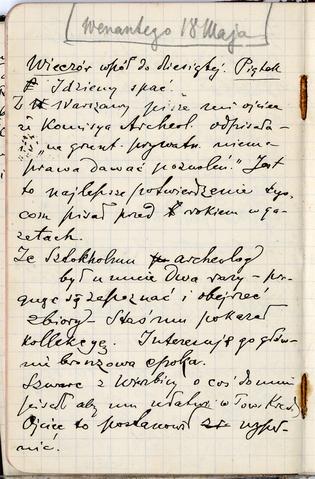 [Wenantego 18 Maja]
Wieczór wpół do dziesiątej. Piątek
Idziemy spać.
Z Warszawy pisze mi ojciec
że Komisya Archeol. odpisała –
„na grunt. prywatn. niema
prawa dawać pozwoleń." Jest
to najlepsze potwierdzenie tego
com pisał przed rokiem w ga-
zetach.
Ze Sztokholmu archeolog
był u mnie dwa razy – pra-
gnąc się zapoznać i obejrzeć
zbiory – Stasiu pokazał
kollekcyę. Interesuje go głów-
nie bronzowa epoka.
Szwarc z Wierbicy o coś do mnie
pisał aby mu udało w Tow. Kred.
Ojciec to postanowił wypeł-
nić.